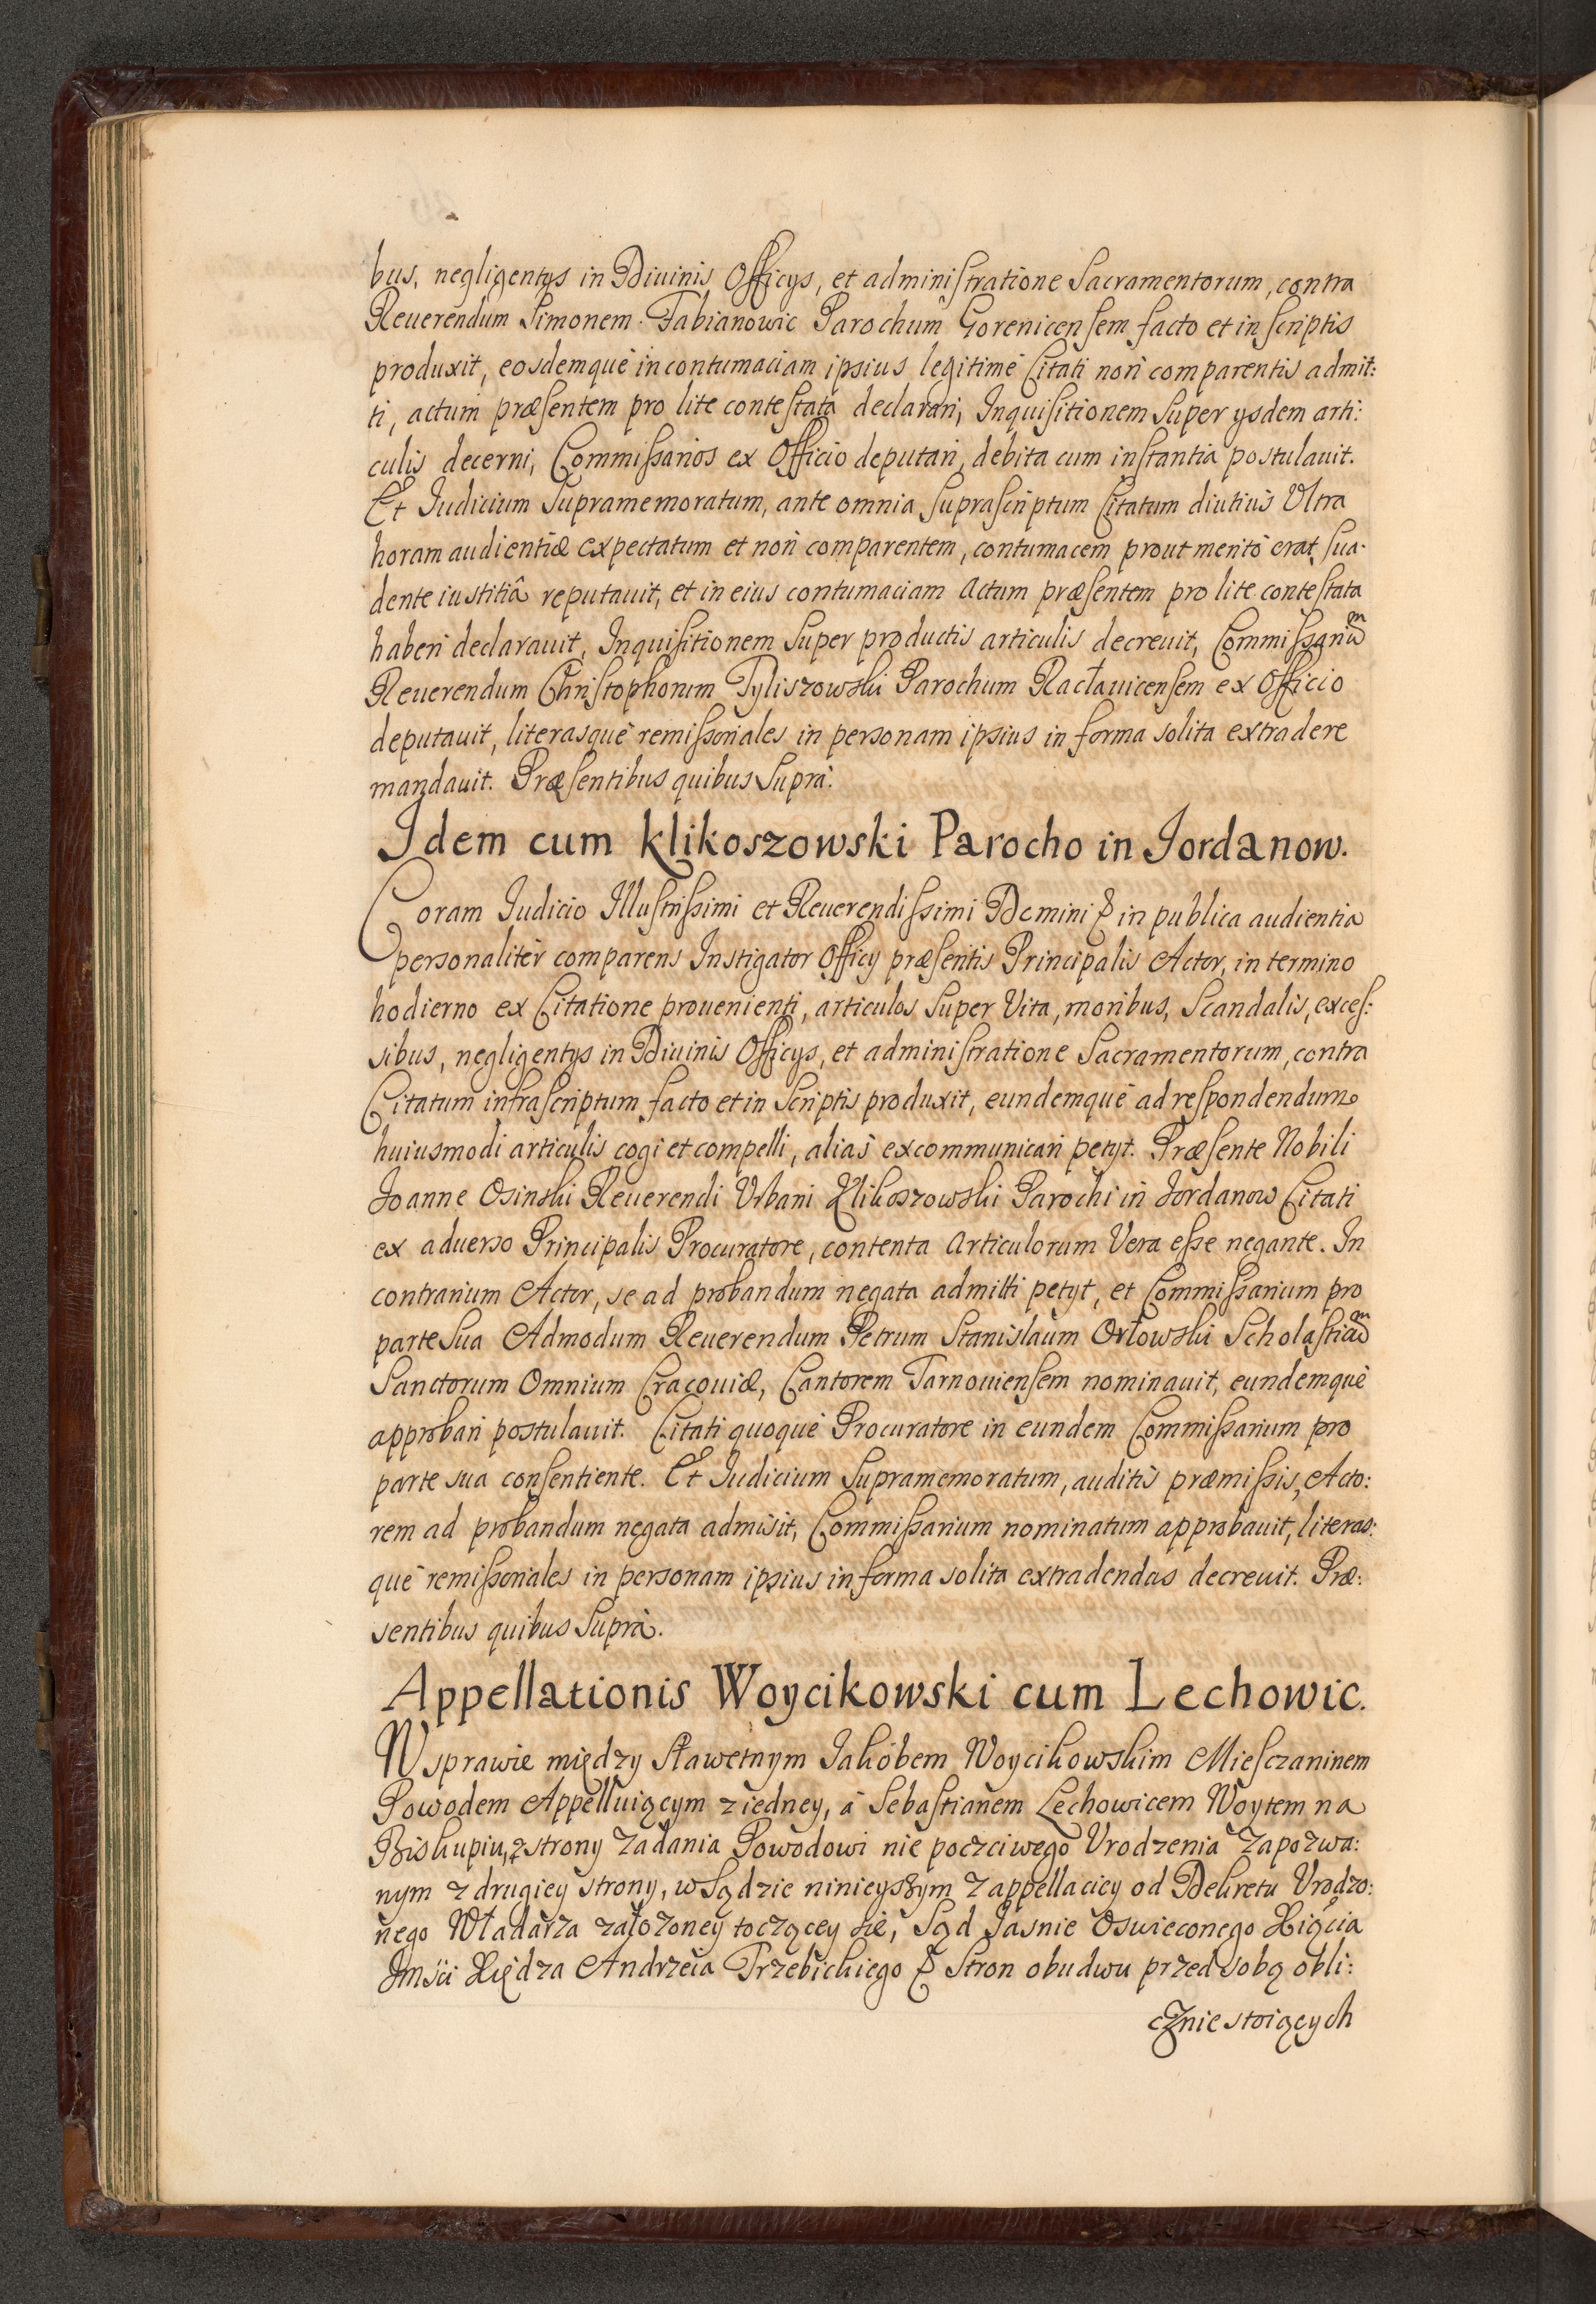 bus, negligentys in Diuinis Officys, et administratione Sacramentorum, contra
Reuerendum Simonem Fabianowic Parochum Gorenicensem facto et in scriptis
produxit, eosdemquè in contumaciam ipsius legitimè Citati non comparentis admit:
ti, actum præsentem pro lite contestata declarari, Inquisitionem super ysdem arti:
culis decerni, Commissarios ex Officio deputari, debita cum instantia postulauit.
Et Iudicium supramemoratum, ante omnia suprascriptum Citatum diutius Vltra
horam audientiæ expectatum et non comparentem, contumacem prout meritò erat sua-
dente iustitiâ reputauit, et in eius contumaciam Actum præsentem pro lite contestata
haberi declarauit, Inquisitionem super productis articulis decreuit, Commissariũm
Reuerendum Christophorum Tyliszowski Parochum Racłauicensem ex Officio
deputauit, literasquè remissoriales in personam ipsius in forma solita extradere
mandauit. Præsentibus quibus Suprà.
Idem cum Klikoszowski Parocho in Iordanow.
Coram Iudicio Illustrissimi et Reuerendissimi Domini & in publica audientia
personalitèr comparens Instigator Officy præsentis Principalis Actor, in termino
hodierno ex Citatione prouenienti, articulos super Vita, moribus, Scandalis, exces:
sibus, negligentys in Diuinis Officys, et administratione Sacramentorum, contra
Citatum infrascriptum facto et in Scriptis produxit, eundemquè ad respondendum
huiusmodi articulis cogi et compelli, aliàs excommunicari petyt. Præsente Nobili
Joanne Osinski Reuerendi Vrbani Klikoszowski Parochi in Jordanow Citati
ex aduerso Principalis Procuratore, contenta Articulorum Vera esse negante. In
contrarium Actor, se ad probandum negata admitti petyt, et Commissarium pro
parte sua Admodum Reuerendum Petrum Stanislaum Orłowski Scholasticũm
Sanctorum Omnium Cracouiæ, Cantorem Tarnouiensem nominauit, eundemquè
approbari postulauit. Citati quoquè Procuratore in eundem Commissarium pro
parte sua consentiente. Et Iudicium supramemoratum, auditis præmissis, Acto:
rem ad probandum negata admisit, Commissarium nominatum approbauit, literas:
què remissoriales in personam ipsius in forma solita extradendas decreuit. Præ:
sentibus quibus Suprà.
Appellationis Woycikowski cum Lechowic.
W sprawie między Sławetnym Jakóbem Woycikowskim Miesczaninem
Powodem Appelluiącym z iedney, á Sebastianem Lechowicem Woytem na
Biskupiu, z strony Zadania Powodowi nie poczciwego Vrodzenia Zapozwa:
nym z drugiey strony, w Sądzie ninieyszym z appellaciey od Dekretu Vrodzo:
nego Władarza założoney toczącey sie, Sąd Jasnie Oswieconego Xiążcia
Jmści Xiędza Andrzeia Trzebickiego & Stron obudwu przed sobą obli:
cznie stoiących